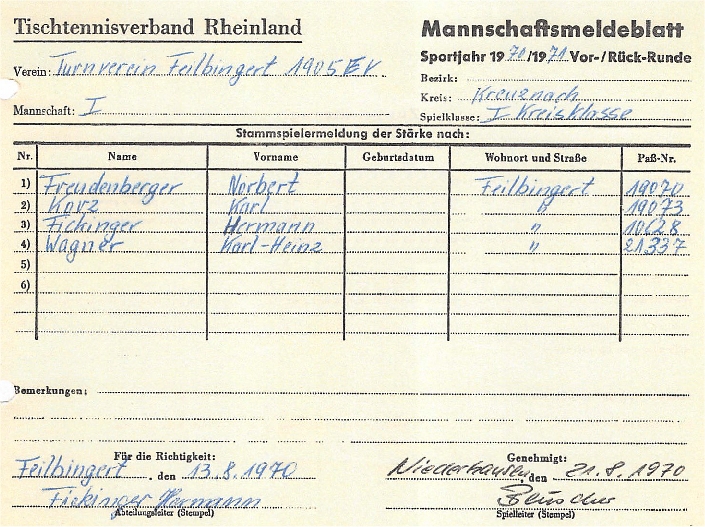 Tischtennisverband Rheinland
Mannschaftsmeldeblatt
Sportjahr 1970/1971 Vor-/Rück-Runde
Verein: Turnverein Feilbingert 1905 EV
Bezirk:
Kreis: Kreuznach
Mannschaft: I
Spielklasse: I Kreisklasse
Stammspielermeldung der Stärke nach:
Nr. Name Vorname Geburtsdatum Wohnort und Straße Paß-Nr.
1) Freudenberger Norbert Feilbingert 19070
2) Korz Karl " 19073
3) Fickinger Hermann " 10628
4) Wagner Karl-Heinz " 21337
5)
6)
Bemerkungen:
Für die Richtigkeit:
Genehmigt:
Feilbingert, den 13.8.1970
Niederhausen, den 21.8.1970
Fickinger Hermann
Abteilungsleiter (Stempel)
Spielleiter (Stempel)